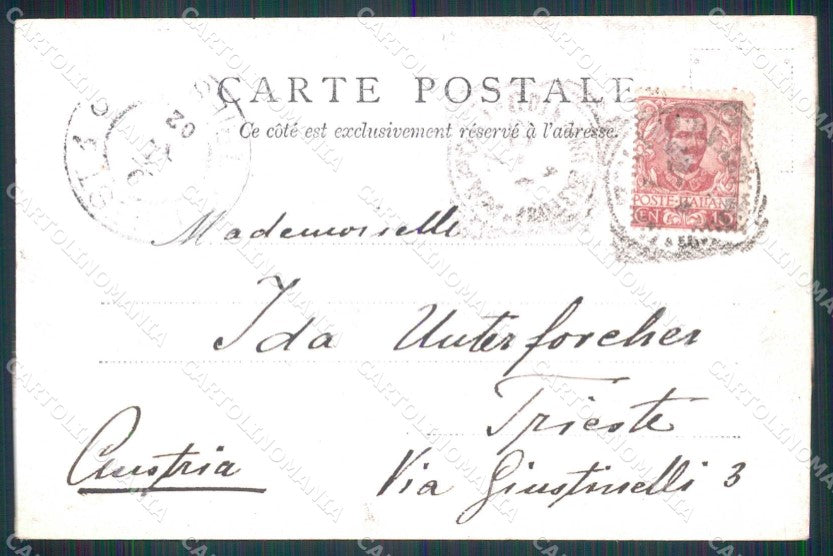 CARTE POSTALE
Ce côté est exclusivement réservé à l'adresse.
POSTE ITALIANE
02
Mademoiselle
Ida Unterforcher
Trieste
Austria
Via Giustinelli 3
CARTOLINOMANIA